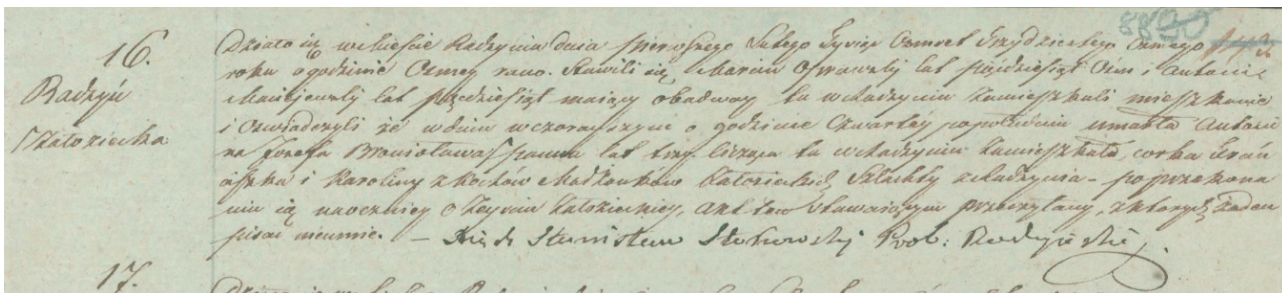 16.
Radzyń
Załoziecka
8890
Działo się w Mieście Radzyniu dnia pierwszego Lutego Tysiąc Osmset Trzydziestego Osmego
roku o godzinie Osmey rano. Stawili się Marcin lat pięćdziesiąt Ośm i Antoni
lat pięćdziesiąt maiący obadway tu w Radzyniu zamieszkali mieszkanie
i Oświadczyli że w dniu wczorayszym o godzinie Czwartey popołudniu umarła Antoni
na Józefa Bronisława panna lat trzy licząca tu w Radzyniu zamieszkała, corka Fran
ciszka i Karoliny z Kochów Małżonków Szlachty z Radzynia - po przekona
niu się naoczniey o Zeyściu Załozieckiey, Akt ten stawaiącym przeczytany, z których żaden
pisać nieumie. — Xiądz Stanisław Prob: Radzyński
17.